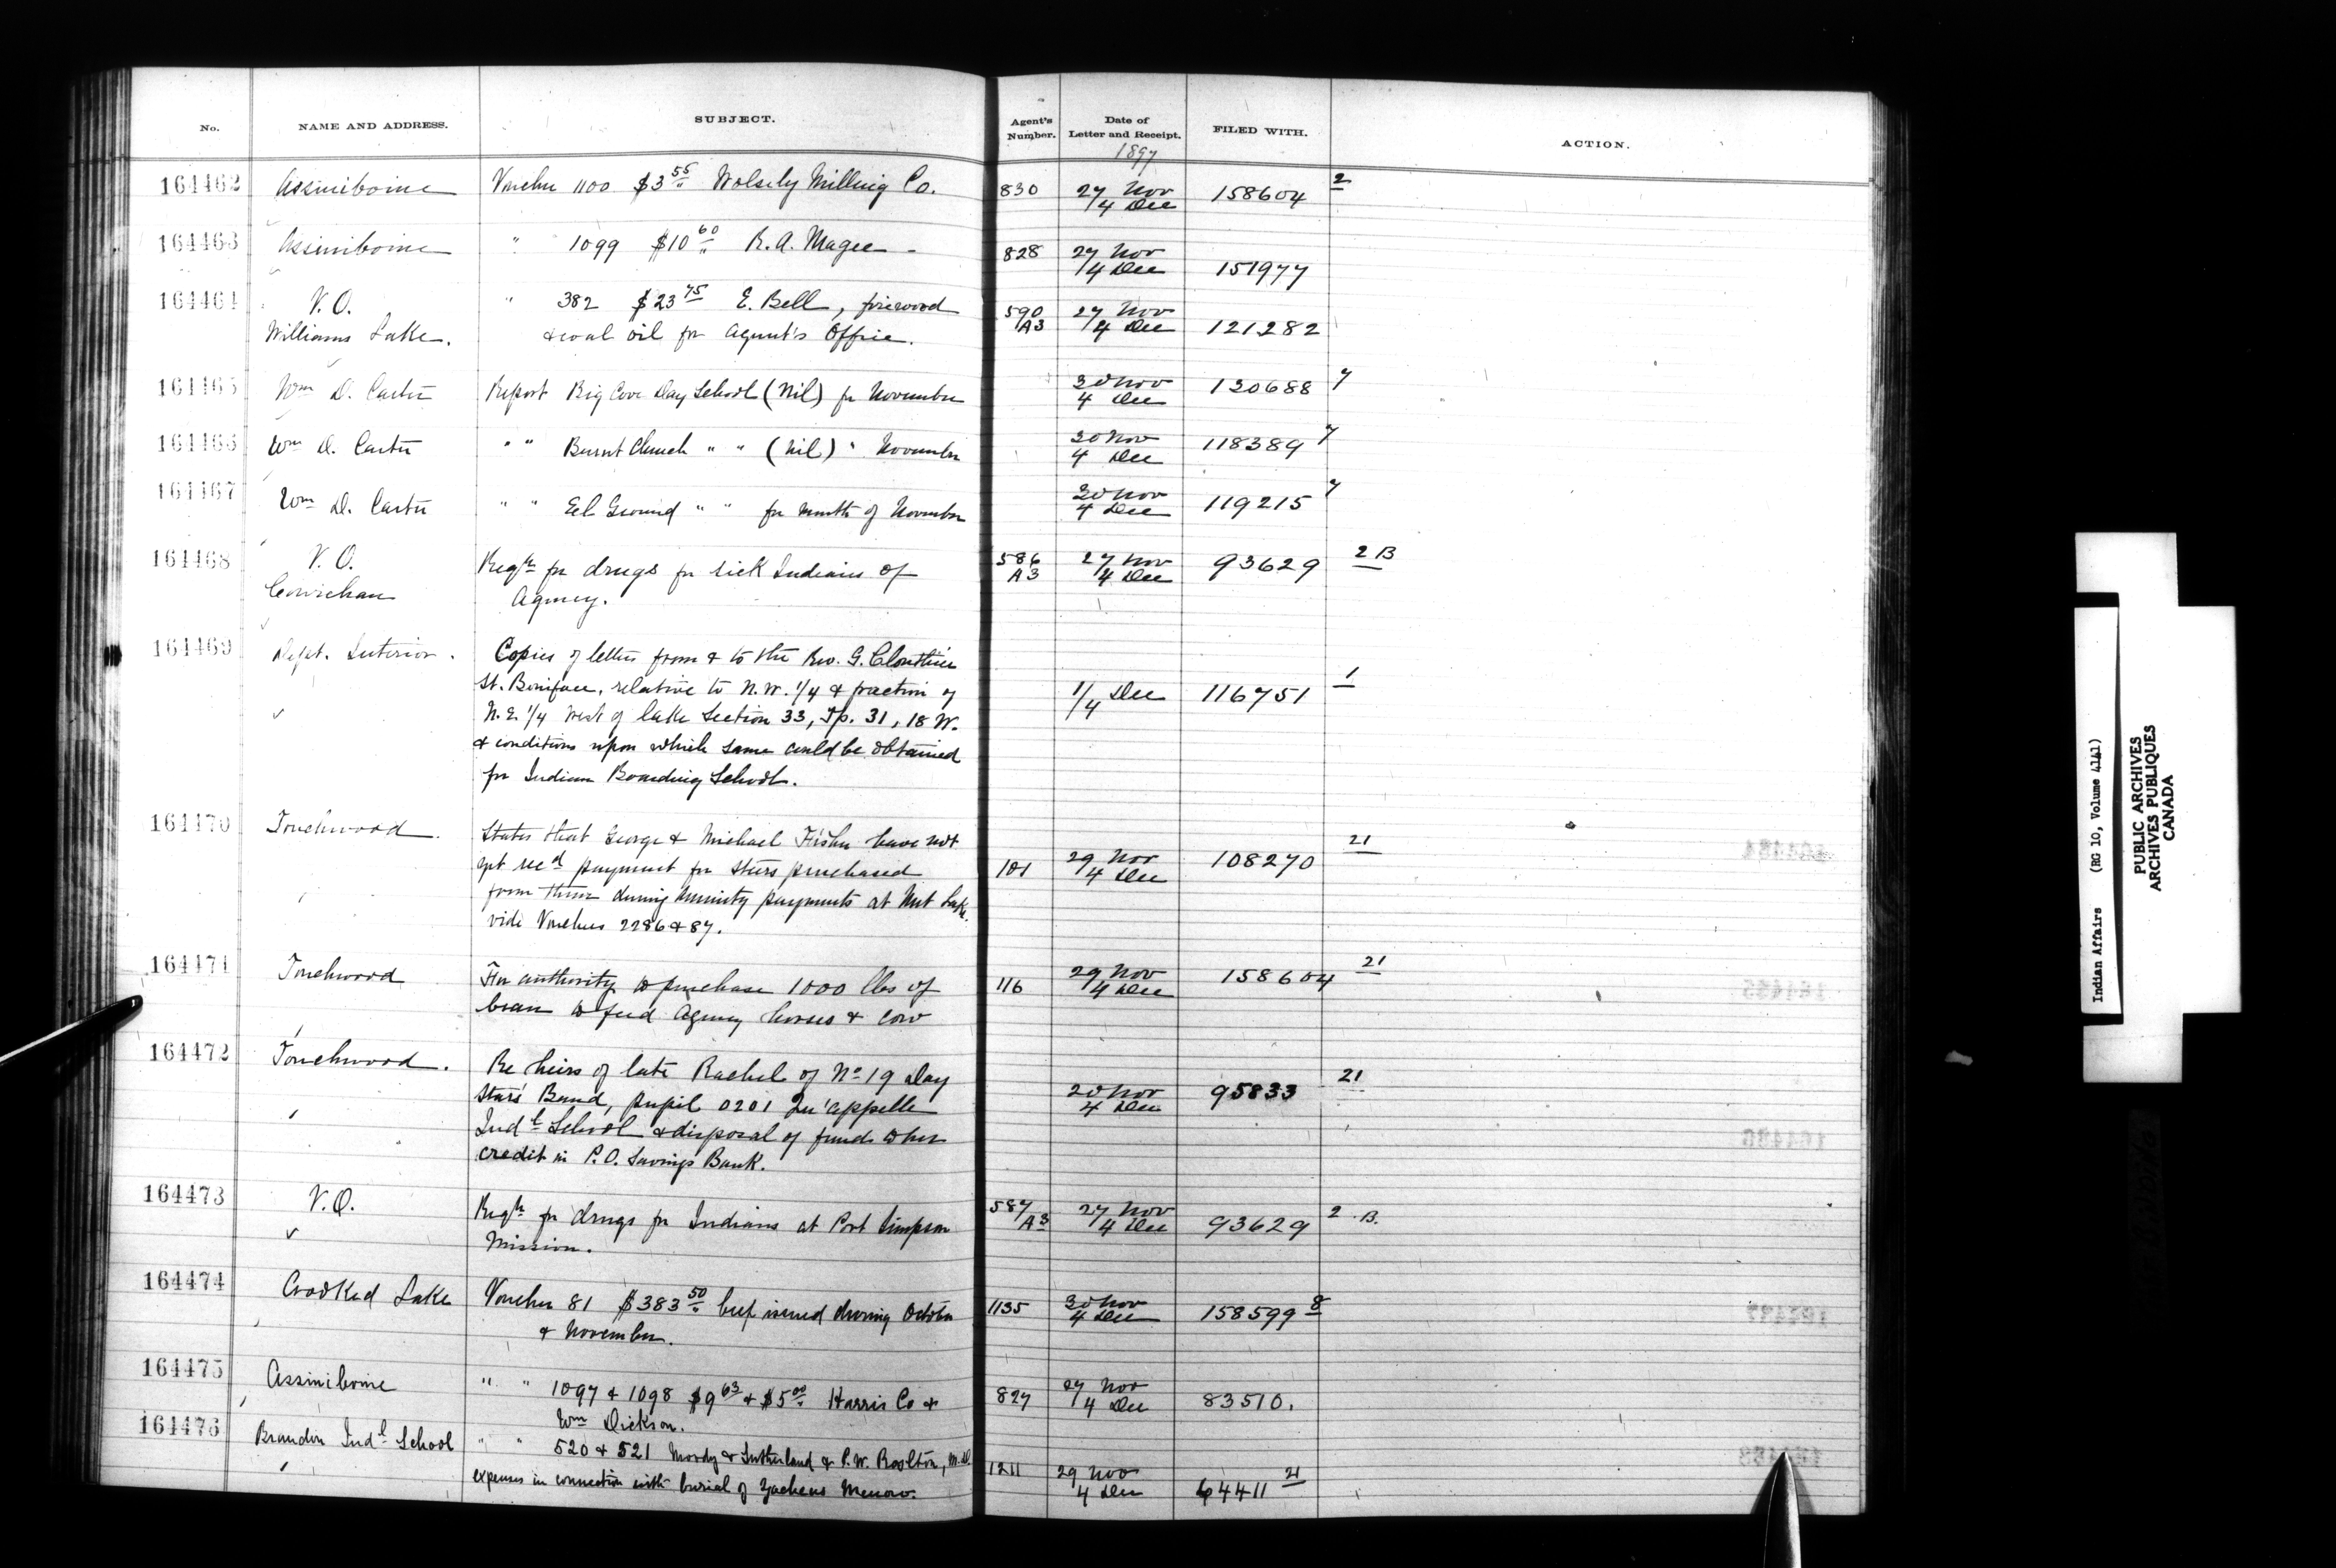 No. NAME AND ADDRESS. SUBJECT. Agent's Number. Date of Letter and Receipt. FILED WITH. ACTION.
1897
164462 Assiniboine Voucher 1100 $3 55 Wolsely Milling Co. 830 27 Nov 158604 2
4 Dec
164463 Assiniboine " 1099 $10 60 R. A. Magee - 828 27 Nov
4 Dec 151977
164464 V. O. " 382 $23 75 E. Bell, firewood 590 27 Nov
Williams Lake. & coal oil for Agent's Office. A3 4 Dec 121282
164465 Wm D. Carter Report Big Cove Day School (Nil) for November 30 Nov 120688 7
4 Dec
164466 Wm D. Carter " " Burnt Church " " (Nil) " November 30 Nov 118389 7
4 Dec
164467 Wm D. Carter " " Eel Ground " " for month of November 30 Nov 119215 7
4 Dec
164468 V. O. Reqn for drugs for sick Indians of 586 27 Nov 93629 2 B
Cowichan Agency. A3 4 Dec
164469 Dept. Interior. Copies of letters from & to the Rev. G. Cloutier
St. Boniface, relative to N.W. 1/4 & fraction of 1/4 Dec 116751 1
N.E. 1/4 West of lake Section 33, Tp. 31, 18 W.
& conditions upon which same could be obtained
for Indian Boarding School.
164470 Touchwood. States that George & Michael Fisher have not 21
yet recd payment for steers purchased 101 29 Nov 108270
from them during annuity payments at Nut Lake. 4 Dec
vide Vouchers 2286 & 87.
164471 Touchwood For authority to purchase 1000 lbs of 116 29 Nov 158604 21
bran to feed Agency horses & cow 4 Dec
164472 Touchwood. Re heirs of late Rachel of No 19 Day 21
Stars' Band, pupil 0201 Qu'appelle 20 Nov 95833
Indl School & disposal of funds to her 4 Dec
credit in P.O. Savings Bank.
164473 V. O. Reqn for drugs for Indians at Port Simpson 587 27 Nov 93629 2 B.
Mission. A3 4 Dec
164474 Crooked Lake Voucher 81 $383 50 beef issued during October 1135 30 Nov 158599 8
& November. 4 Dec
164475 Assiniboine " " 1097 & 1098 $9 63 & $5 00 Harris Co & 827 27 Nov 83510.
Wm Dickson. 4 Dec
164476 Brandon Indl School " " 520 & 521 Moody & Sutherland & P. W. M.D. 1211 29 Nov 64411 21
expenses in connection with burial of 4 Dec
Indian Affairs (RG 10, Volume 4141)
PUBLIC ARCHIVES
ARCHIVES PUBLIQUES
CANADA